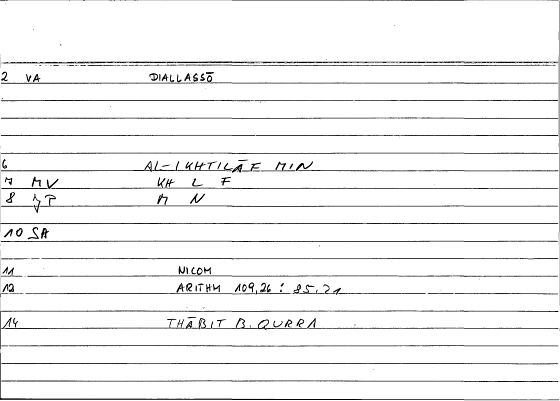 2 VA DIALLASSŌ
6 AL-IKHTILĀF MIN
7 MV KH L F
8 M N
10 SA
11 NICOM
12 ARITHM 109,26 : 85.21
14 THĀBIT B. QURRA